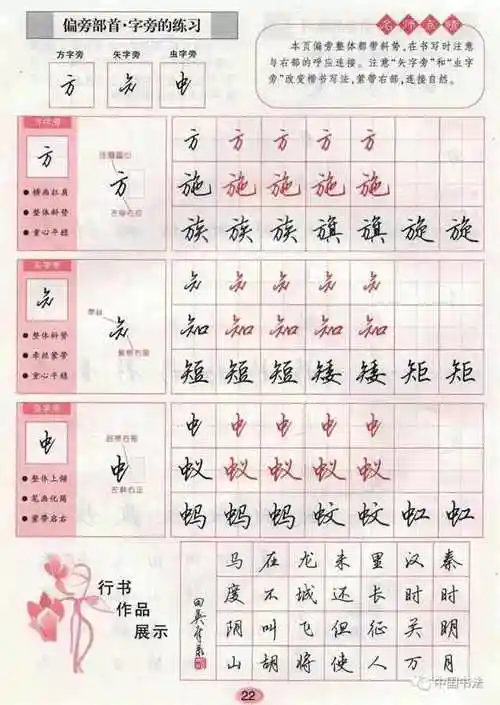 偏旁部首·字旁的练习
方字旁 矢字旁 虫字旁
方 矢 虫
名师点睛
本页偏旁整体都带斜势,在书写时注意
与右部的呼应连接。注意“矢字旁”和“虫字
旁”改变楷书写法,紧带右部,连接自然。
方字旁
方
横画扛肩
整体斜势
重心平稳
方
方 方 方 方 方
施 施 施 施 施
族 族 族 旗 旗 旋 旋
矢字旁
矢
整体斜势
牵丝紧带
重心平稳
矢
矢 矢 矢 矢 矢
知 知 知 知 知
短 短 短 矮 矮 矩 矩
虫字旁
虫
整体上倾
笔画化简
紧带启右
虫
左斜右正
虫 虫 虫 虫 虫
蚁 蚁 蚁 蚁 蚁
蚂 蚂 蚂 蚊 蚊 虹 虹
行书
作品
展示
秦时明月
汉时关万
里长征人
未还但使
龙城飞将
在不叫胡
马度阴山
田英章
22
中国书法